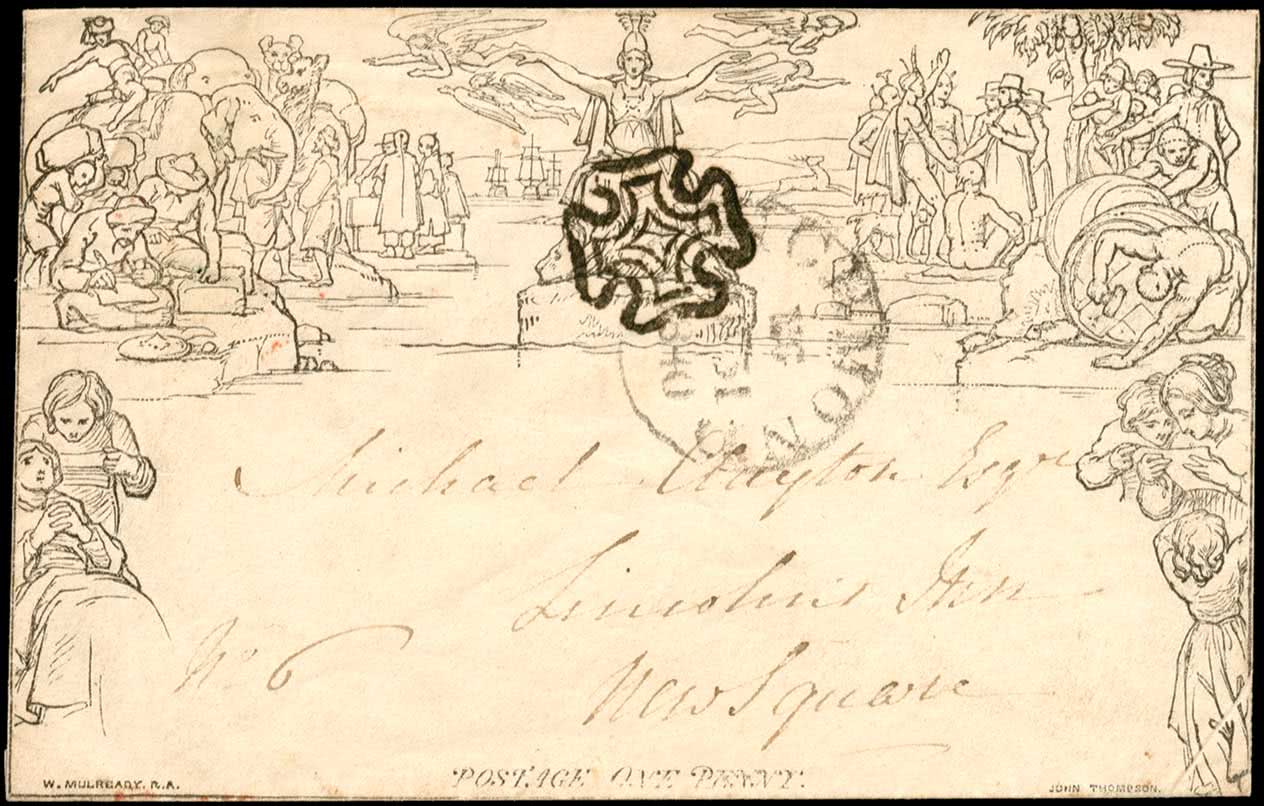 Michael Clayton Esqre
Lincolns Inn
New Square
No 6
POSTAGE ONE PENNY.
W. MULREADY, R.A.
JOHN THOMPSON.